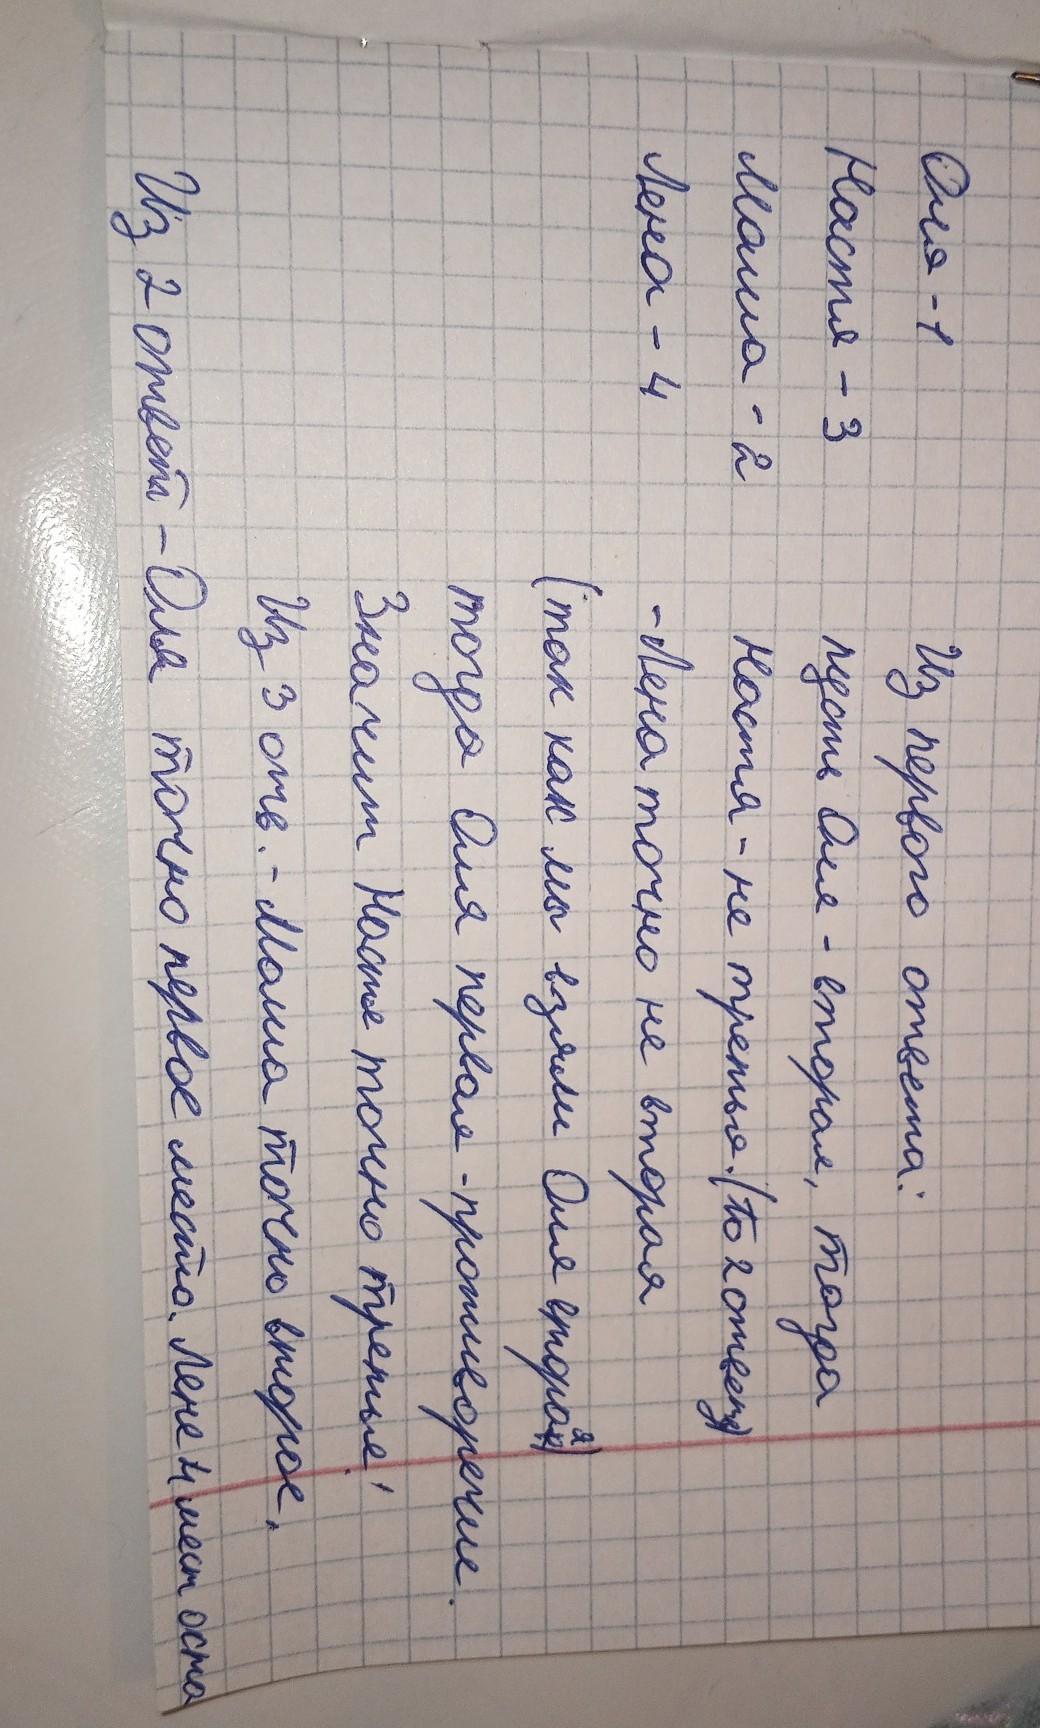 Оля - 1
Настя - 3
Маша - 2
Лена - 4
Из первого ответа:
пусть Оля - вторая, тогда
Настя - не третья. (по 2 ответу)
- Лена точно не вторая
(так как мы взяли Оля вторая)
тогда Оля первая - противоречие.
Значит Настя точно третья!
Из 3 отв. - Маша точно второе.
Из 2 ответа - Оля точно первое место. Лене 4 мест оста